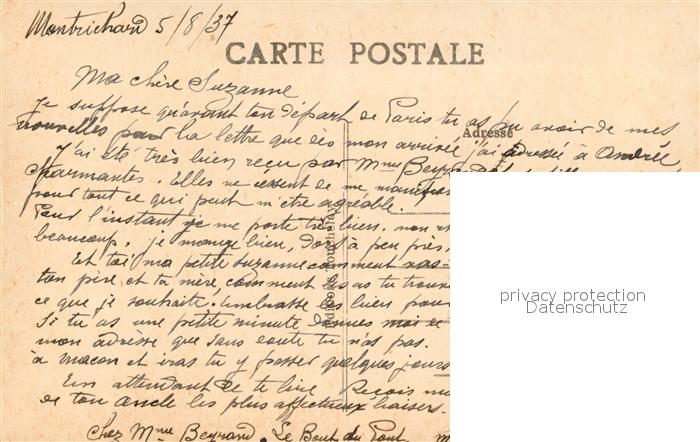 Montrichard 5/8/37
CARTE POSTALE
Ma chère Suzanne
Je suppose qu'avant ton départ de Paris tu as pu avoir de mes
Adresse
nouvelles par la lettre que dès mon arrivée j'ai adressée à Andrée
J'ai été très bien reçu par Mme Beyrand
charmantes. Elles ne cessent de me
pour tout ce qui peut m'être agréable.
Pour l'instant je me porte très bien.
beaucoup, je mange bien, dors à peu près,
Et toi ma petite Suzanne comment vas
ton père et ta mère, comment les as tu
ce que je souhaite. Embrasse les bien pour
Si tu as une petite minute donnes moi
mon adresse que sans doute tu n'as pas.
à Macon et iras tu y passer quelques jours
En attendant de te lire Reçois
de ton oncle les plus affectueux baisers.
Chez Mme Beyrand. Le Bout du Pont
privacy protection
Datenschutz